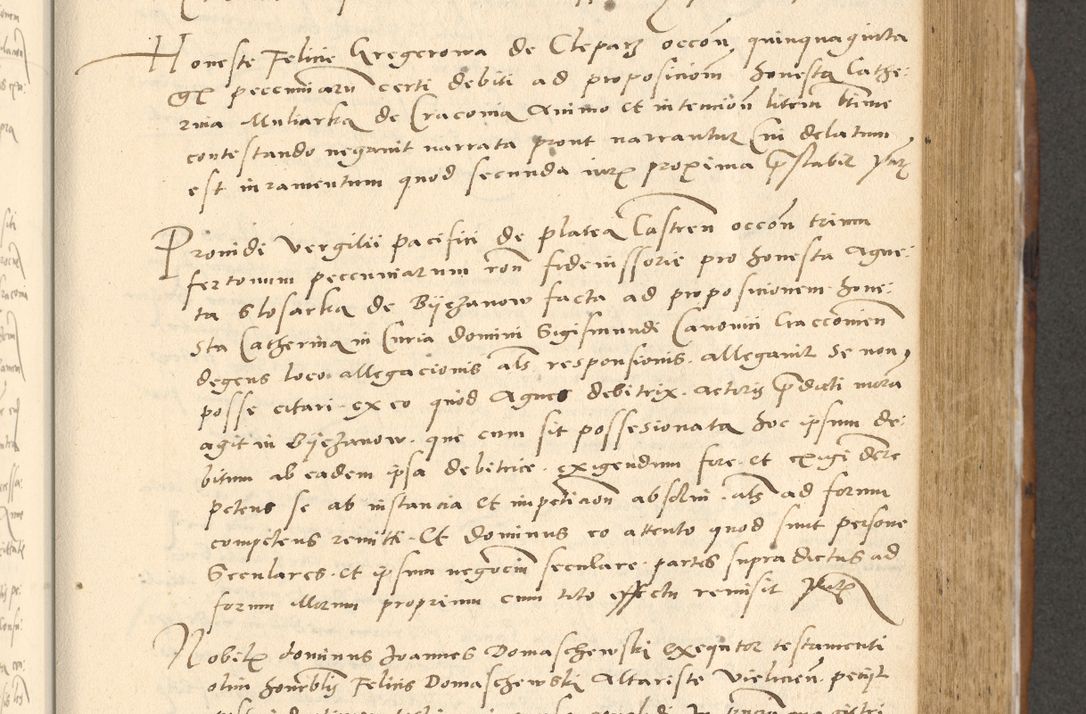 Honeste Felicie Gregerowa de Cleparz occon quinquaginta
gr peccuniarum certi debiti ad proposicionem honesta Cathe-
rina Mulιarka de Cracovia Animo et intencion litem
contestando negavit narrata prout narrantur Cui delatum
est iuramentum quod secunda iuris proxima prestabit
Providi Vergilii pacifici de platea Castren occon trium
fertonum peccuniarum ron fideiussorie pro honesta Agne-
ta Slosarka de Byezanow facta ad proposicionem hone-
sta Catherina in Curia domini Sigismundi Canonici Cracconien
degens loco allegacionis als responsionis allegavit se non
posse citari ex eo quod Agnes debitrix actoris predicti moram
agit in Byezanow que cum sit possesionata hoc ipsum de-
bitum ab eadem ipsa debitrice exigendum fore et exigi debere
petens se ab instancia et impeticion absolvi als ad forum
competens remitti Et dominus eo attento quod sunt persone
Seculares et ipsum negocium seculare partes supradictas ad
forum Morum proprium cum toto effectu remisit
Nobilis dominus Joannes Domaschewski exequtor testamenti
olim honorblis Felicis Domaschewski Altariste Vielicien petiit